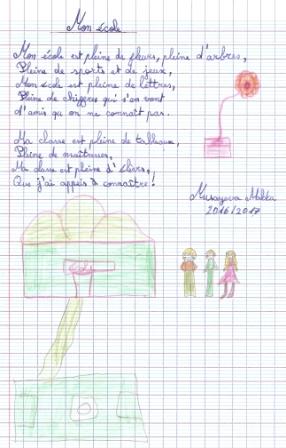 Mon école
Mon école est pleine de fleurs, pleine d'arbres,
Pleine de sports et de jeux,
Mon école est pleine de lettres,
Pleine de chiffres qui s'en vont
d'amis qu'on ne connaît pas.
Ma classe est pleine de tableaux,
Pleine de maîtresses,
Ma classe est pleine d'élèves,
Que j'ai appris à connaître !
Musayeva Malika
2016/2017